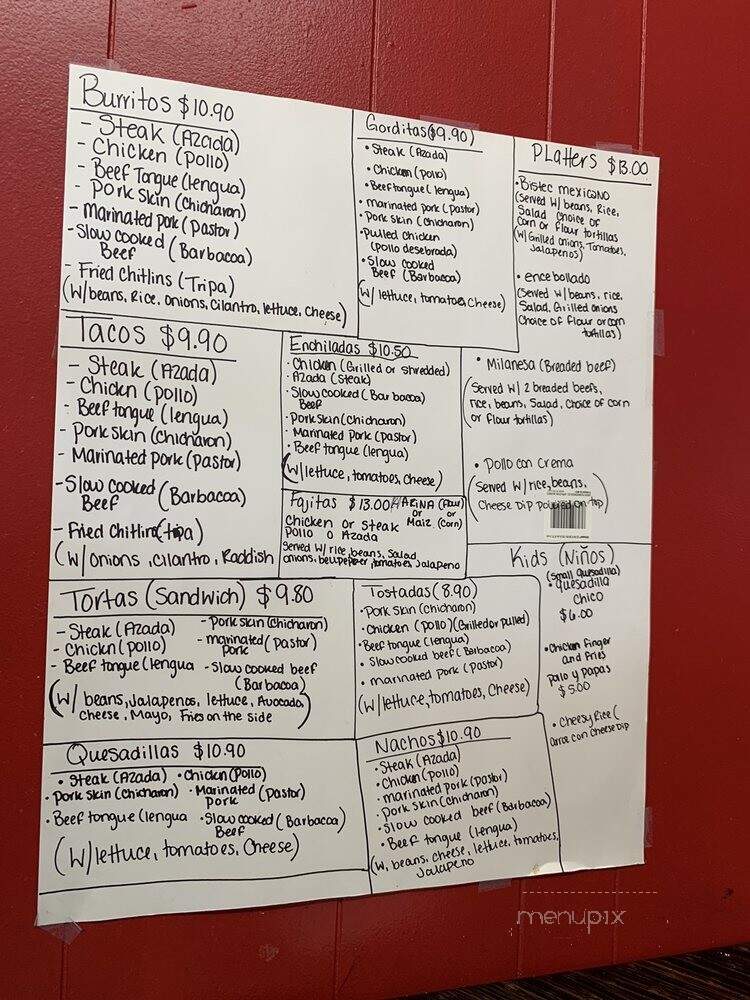 Burritos $10.90
- Steak (Azada)
- Chicken (pollo)
- Beef Tongue (lengua)
- Pork Skin (chicharon)
- Marinated pork (pastor)
- Slow cooked (Barbacoa)
Beef
- Fried Chitlins (Tripa)
(W/beans, Rice, onions, cilantro, lettuce, Cheese)
Gorditas ($9.90)
• Steak (Azada)
• Chicken (pollo)
• Beef tongue (lengua)
• marinated pork (pastor)
• Pork skin (chicharon)
• Pulled Chicken
(pollo desebrada)
• Slow cooked
Beef (Barbacoa)
(W/ lettuce, tomatoes, Cheese)
Platters $13.00
• Bistec mexicano
(Served W/ beans, Rice,
Salad choice of
corn or flour tortillas
(W/ Grilled onions, Tomatoes,
Jalapenos)
• encebollado
(Served W/beans, rice,
Salad, Grilled onions
Choice of flour or corn
tortillas)
• Milanesa (Breaded beef)
(Served W/ 2 breaded beefs,
rice, beans, Salad, choice of corn
or flour tortillas)
• Pollo con Crema
(Served W/rice, beans,
Cheese Dip poured on top)
Tacos $9.90
- Steak (Azada)
- Chickn (pollo)
- Beef tongue (lengua)
- Pork skin (chicharon)
- Marinated pork (pastor)
- Slow cooked (Barbacoa)
Beef
- Fried Chitlin (tripa)
(W/onions, cilantro, Raddish
Enchiladas $10.50
• Chicken (Grilled or shredded)
• Azada (steak)
• Slow cooked (Barbacoa)
Beef
• Pork skin (chicharon)
• Marinated Pork (pastor)
• Beef tongue (lengua)
(W/lettuce, tomatoes, cheese)
Fajitas $13.00 HARINA (flour)
or or
Chicken or Steak Maiz (corn)
Pollo o Azada
Served W/ rice, beans, Salad,
onions, bellpepper, tomatoes, Jalapeno
Kids (Niños)
(Small Quesadilla)
• Quesadilla
Chico
$6.00
• Chicken finger
and Fries
pollo y papas
$5.00
• Cheesy Rice (
arroz con Cheese Dip
Tortas (Sandwich) $9.80
- Steak (Azada)
- Chickn (pollo)
- Beef tongue (lengua
- Pork skin (chicharon)
- marinated (pastor)
pork
- Slow cooked beef
(Barbacoa)
(W/ beans, Jalapenos, lettuce, Avocado,
Cheese, Mayo, Fries on the side
Tostadas (8.90)
• Pork skin (chicharon)
• Chicken (pollo) (Grilled or pulled)
• Beef tongue (lengua)
• Slow cooked beef (Barbacoa)
• marinated pork (pastor)
(W/ lettuce, tomatoes, Cheese)
Quesadillas $10.90
• Steak (Azada) • Chicken (Pollo)
• Pork skin (chicharron) • Marinated (pastor)
pork
• Beef tongue (lengua • Slow cooked (Barbacoa)
Beef
(W/ lettuce, tomatoes, Cheese)
Nachos $10.90
• Steak (Azada)
• Chicken (pollo)
• marinated pork (pastor)
• pork skin (chicharon)
• Slow cooked beef (Barbacoa)
• Beef tongue (lengua)
(W, beans, cheese, lettuce, tomatoes,
Jalapeno
menupix